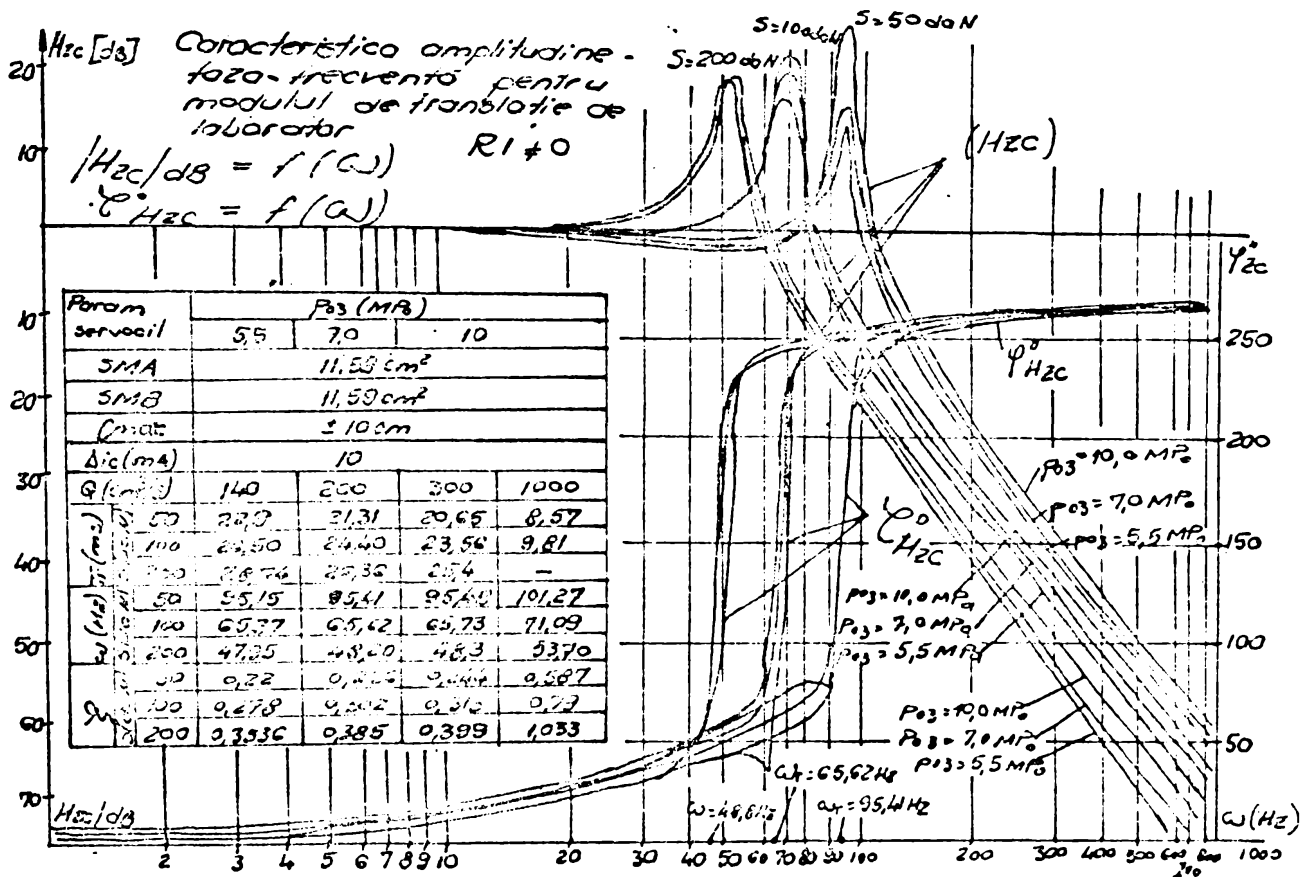 Hzc [dB] Caracteristica amplitudine-
faza-frecventă pentru
modulul de translatie de
laborator
R1 ≠ 0
|Hzc|dB = f(ω)
φ°Hzc = f(ω)
S=200 daN
S=100daN
S=50 daN
(HZC)
20
10
10
20
30
40
50
60
70
Param servocil
P03 (MPa)
5,5 7,0 10
SMA 11,59 cm²
SMB 11,59 cm²
Cmax ± 10 cm
Δic(mA) 10
140 200 300 1000
50 21,31 20,65 8,57
100 24,40 23,56 9,81
200 —
ω (Hz)
50 95,15 95,41 101,27
100 65,77 65,62 65,73 71,09
200 48,3 53,70
50 0,22 0,587
100 0,278 0,73
200 0,3536 0,385 0,399 1,033
φ°zc
250
200
150
100
50
φ°Hzc
φ°HZC
P03=10,0 MPa
P03=7,0 MPa
P03=5,5 MPa
P03=10,0 MPa
P03=7,0 MPa
P03=5,5 MPa
P03=10,0 MPa
P03=7,0 MPa
P03=5,5 MPa
ωr=65,62 Hz
ω=48,6Hz
ωr=95,41 HZ
Hzc/dB
ω(HZ)
2 3 4 5 6 7 8 9 10 20 30 40 50 60 70 80 90 100 200 300 400 500 600 700 800 1000